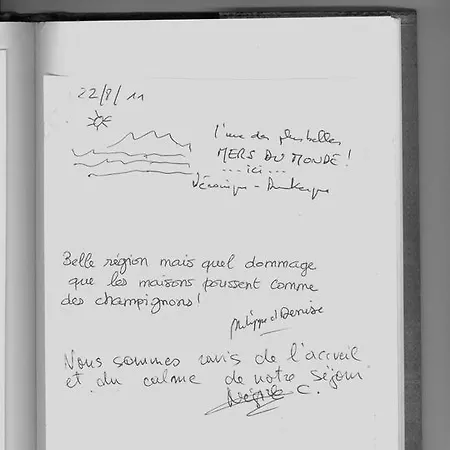 22/8/11
l'une des plus belles
MERS DU MONDE !
--- ici ---
Véronique - Dunkerque
Belle région mais quel dommage
que les maisons poussent comme
des champignons !
Philippe et Denise
Nous sommes ravis de l'accueil
et du calme de notre séjour
C.